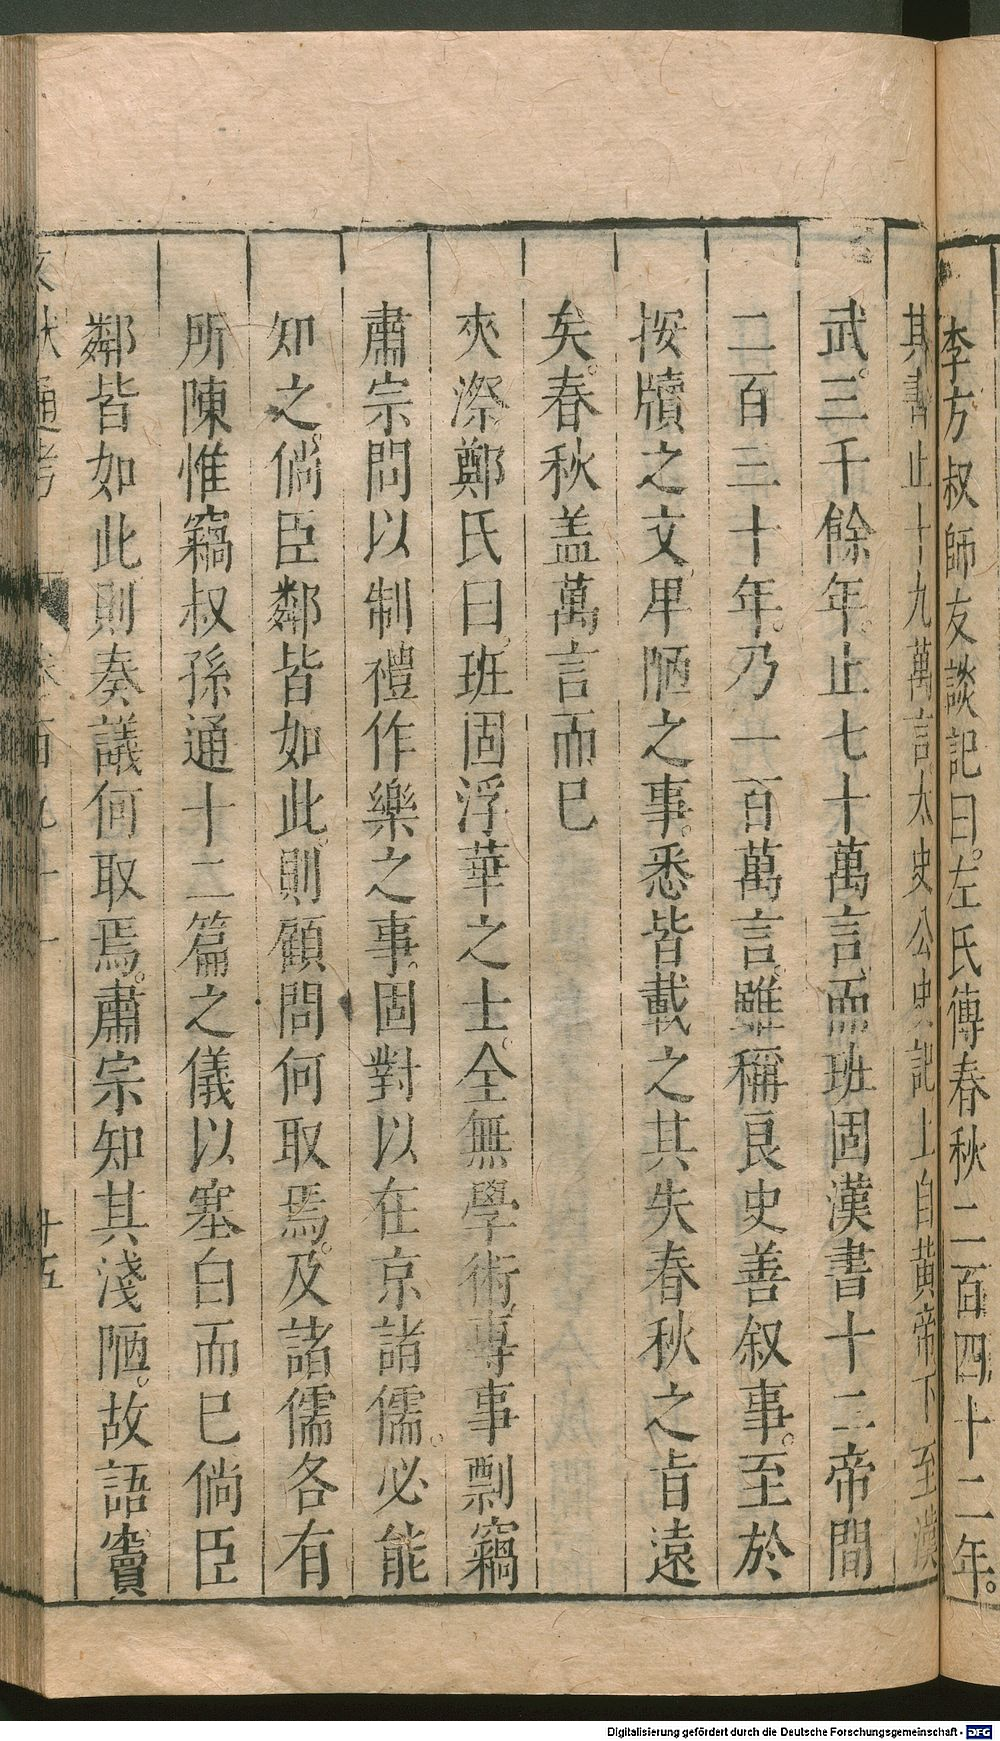 李方叔師友談記曰。左氏傳春秋二百四十二年。
其書止十九萬言太史公史記上自黃帝下至漢
武。三千餘年。止七十萬言。而班固漢書十二帝間
二百三十年。乃一百萬言。雖稱良史善叙事。至於
按牘之文卑陋之事。悉皆載之其失春秋之旨遠
矣。春秋盖萬言而巳
夾漈鄭氏曰。班固浮華之士。全無學術。專事剽竊
肅宗問以制禮作樂之事。固對以在京諸儒。必能
知之。倘臣鄰皆如此。則顧問何取焉。及諸儒各有
所陳惟竊叔孫通十二篇之儀以塞白而巳倘臣
鄰皆如此則奏議何取焉。肅宗知其淺陋。故語竇
文獻通考 卷一百九十一 十五
Digitalisierung gefördert durch die Deutsche Forschungsgemeinschaft - DFG